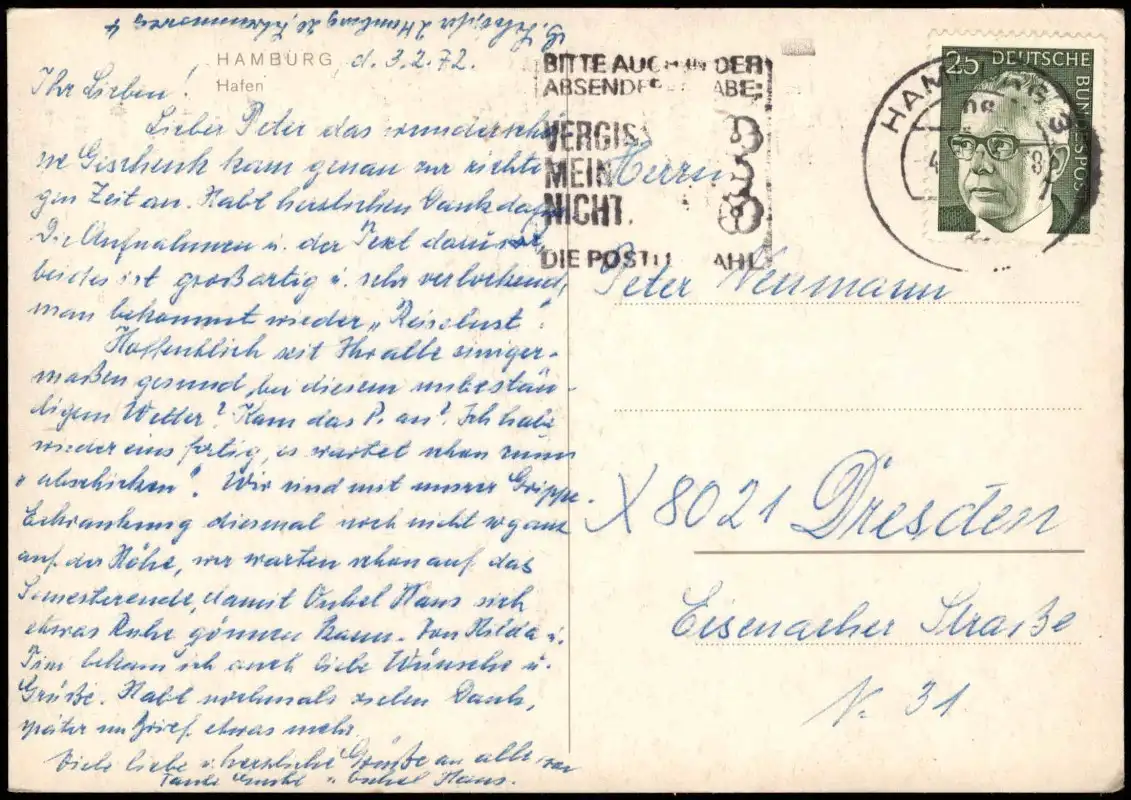 2 Hamburg 20
HAMBURG d. 3.2.72.
Hafen
Ihr Lieben!
Lieber Peter das wundersch
ne Geschenk kam genau zur richti
gen Zeit an. Habt herzlichen Dank dafür
Die Aufnahmen u. der Text dazu
beides ist großartig u. sehr verlockend,
man bekommt wieder „Reiselust".
Hoffentlich seit Ihr alle einiger-
maßen gesund, bei diesem unbestän-
digem Wetter? Kam das P. an? Ich habe
wieder eins fertig, es wartet schon zum
„abschicken". Wir sind mit unser Grippe-
Erkrankung diesmal noch nicht so ganz
auf der Höhe, wir warten schon auf das
Semesterende, damit Onkel Hans sich
etwas Ruhe gönnen kann. Von Hilda u.
bekam ich auch liebe Wünsche u.
Grüße. Habt nochmals vielen Dank,
später im Brief etwas mehr.
Viele liebe u. herzliche Grüße an alle von
Tante u. Onkel Hans.
BITTE AUCH IN DER
ABSENDER ABE:
VERGISS
MEIN
NICHT.
DIE POSTL AHL
HAMBURG
25 DEUTSCHE BUNDESPOST
Herrn
Peter Neumann
X 8021 Dresden
Eisenacher Straße
N. 31